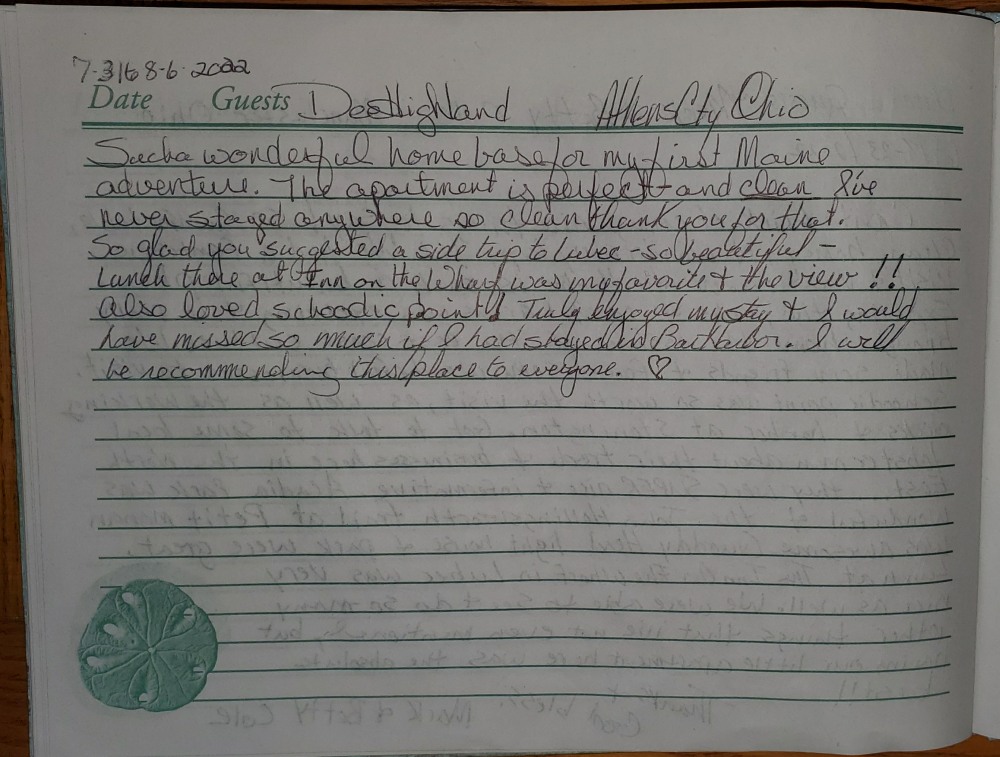 7-31 to 8-6-2022
Date Guests Dee Highland Athens Cty Ohio
Such a wonderful home base for my first Maine
adventure. The apartment is perfect - and clean I've
never stayed anywhere so clean thank you for that.
So glad you suggested a side trip to Lubec - so beautiful -
Lunch there at Inn on the Wharf was my favorite & the view!!
Also loved schoodic point! Truly enjoyed my stay & I would
have missed so much if I had stayed in Bar Harbor. I will
be recommending this place to everyone. ♡